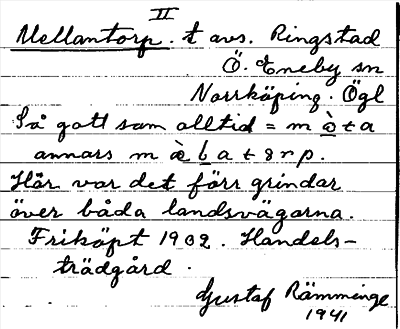 II
Mellantorp. t avs. Ringstad
Ö. Eneby sn
Norrköping. Ögl
Så gott som alltid = m æ̀ t a
annars m æ̀ l a t ɜ r p.
Här var det förr grindar
över båda landsvägarna.
Friköpt 1902. Handels-
trädgård.
Gustaf Rämminge
1941